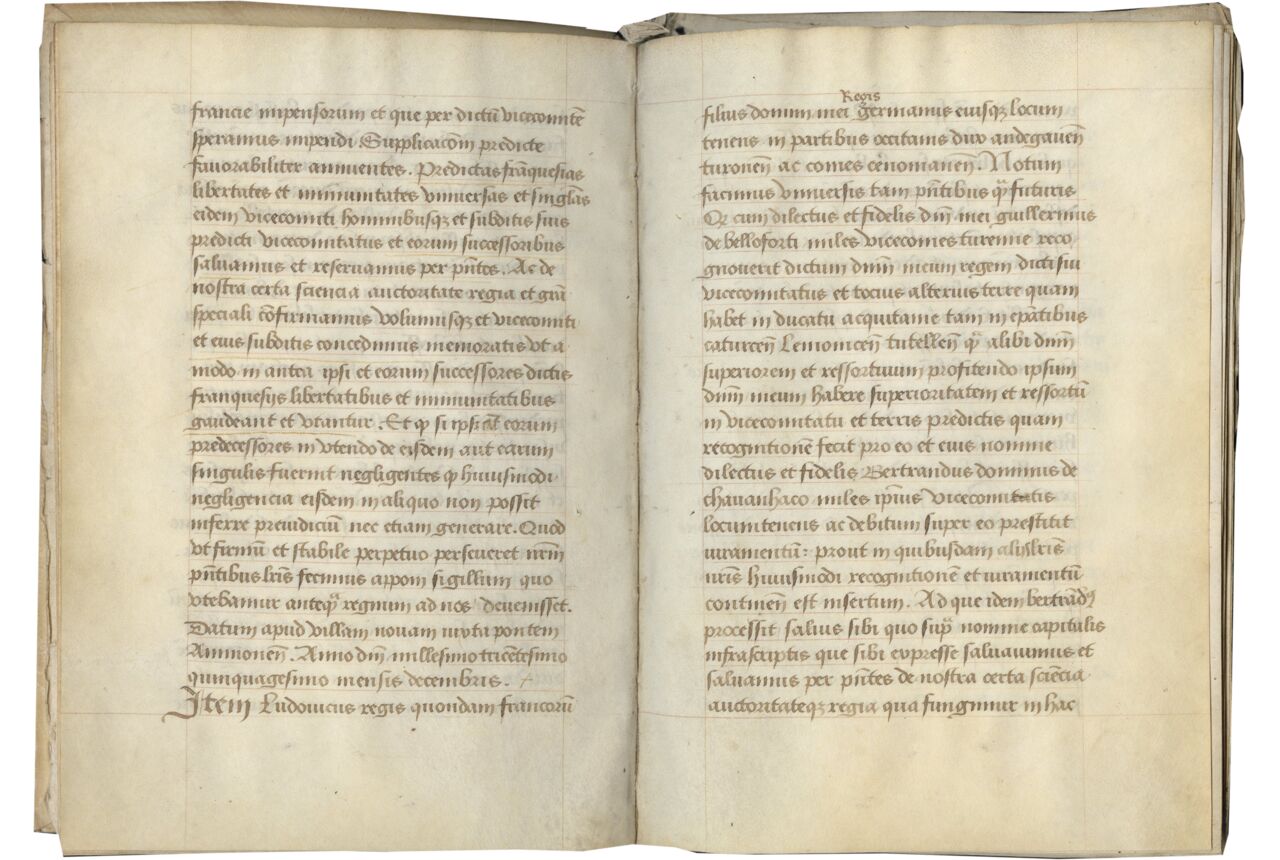 francie impensorum et que per dictū vicecomitē
speramus impendi Supplicacōni predicte
favorabiliter annuentes. Predictas franquesias
libertates et immunitates vniuersas et singlās
eidem vicecomiti hominibusqȝ et subditis suis
predicti vicecomitatus et eorum successoribus
saluamus et reseruamus per pn̄tes. Ac de
nostra certa sciencia auctoritate regia et grā
speciali cōfirmamus volumusqȝ et vicecomiti
et eius subditis concedimus memoratis vt a
modo in antea ipsi et eorum successores dictis
franquesijs libertatibus et immunitatibus
gaudeant et vtantur. Et qꝫ si ipsi aut eorum
predecessores in vtendo de eisdem aut earum
singulis fuerint negligentes qꝫ huiusmodi
negligencia eisdem in aliquo non possit
inferre preiudiciū nec etiam generare. Quod
vt firmū et stabile perpetuo perseueret nr̄m
pn̄tibus lr̄is fecimus apponi sigillum quo
vtebamur anteqͣ regnum ad nos deuenisset.
Datum apud villam nouam iuxta pontem
Auinionen̄. Anno dn̄i millesimo tricētesimo
quinquagesimo mensis decembris.
Item Ludouicus regis quondam francorū
Regis
filius domini mei germanus eiusqȝ locum
tenens in partibus occitanis dux andegaven̄
turonen̄ ac comes cenomanen̄. Notum
facimus vniuersis tam pn̄tibus qͣ futuris
Qꝫ cum dilectus et fidelis dn̄i mei guillermus
de belloforti miles vicecomes turenne reco
gnouerit dictum dn̄m meum regem dicti sui
vicecomitatus et tocius alterius terre quam
habet in ducatu acquitanie tam in ep̄atibus
caturcen̄ Lemonicen̄ tutellen̄ qͣ alibi dn̄m
superiorem et ressortiuum profitendo ipsum
dn̄m meum habere superioritatem et ressortū
in vicecomitatu et terris predictis quam
recognitionē fecit pro eo et eius nomine
dilectus et fidelis Bertrandus dominus de
chauanhaco miles ip̄ius vicecomitatis
locumtenens ac debitum super eo prestitit
iuramentū: prout in quibusdam alijs lr̄is
nr̄is huiusmodi recognitionē et iuramentū
continen̄ est insertum. Ad que idem bertrādꝰ
processit saluis sibi quo supͣ nomine capitulis
infrascriptis que sibi expresse saluauimus et
saluamus per pn̄tes de nostra certa sciēcia
auctoritateqȝ regia qua fungimur in hac